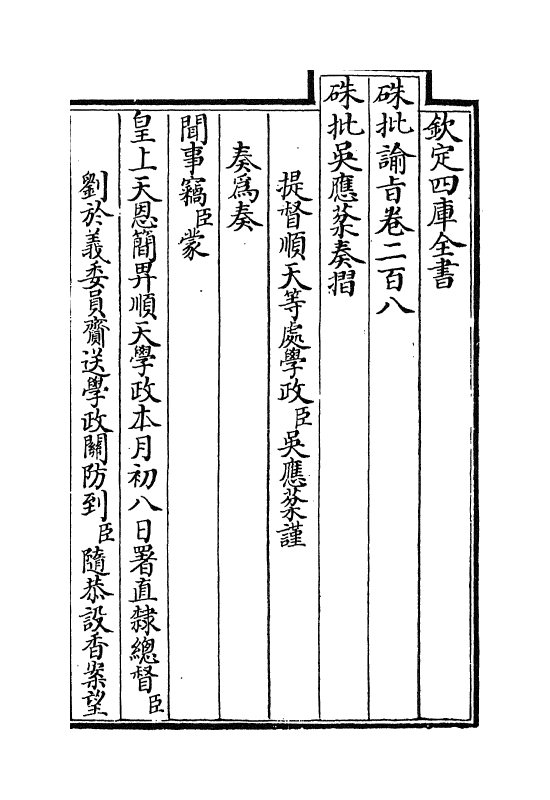 欽定四庫全書
硃批諭旨卷二百八
硃批吳應棻奏摺
提督順天等處學政臣吳應棻謹
奏爲奏
聞事竊臣蒙
皇上天恩簡畀順天學政本月初八日署直隸總督臣
劉於義委員齎送學政關防到臣隨恭設香案望